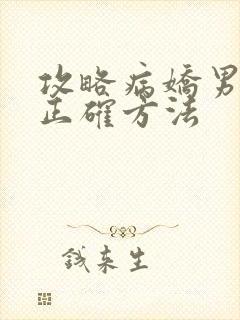 攻略病嬌男
正確方法
錢來生